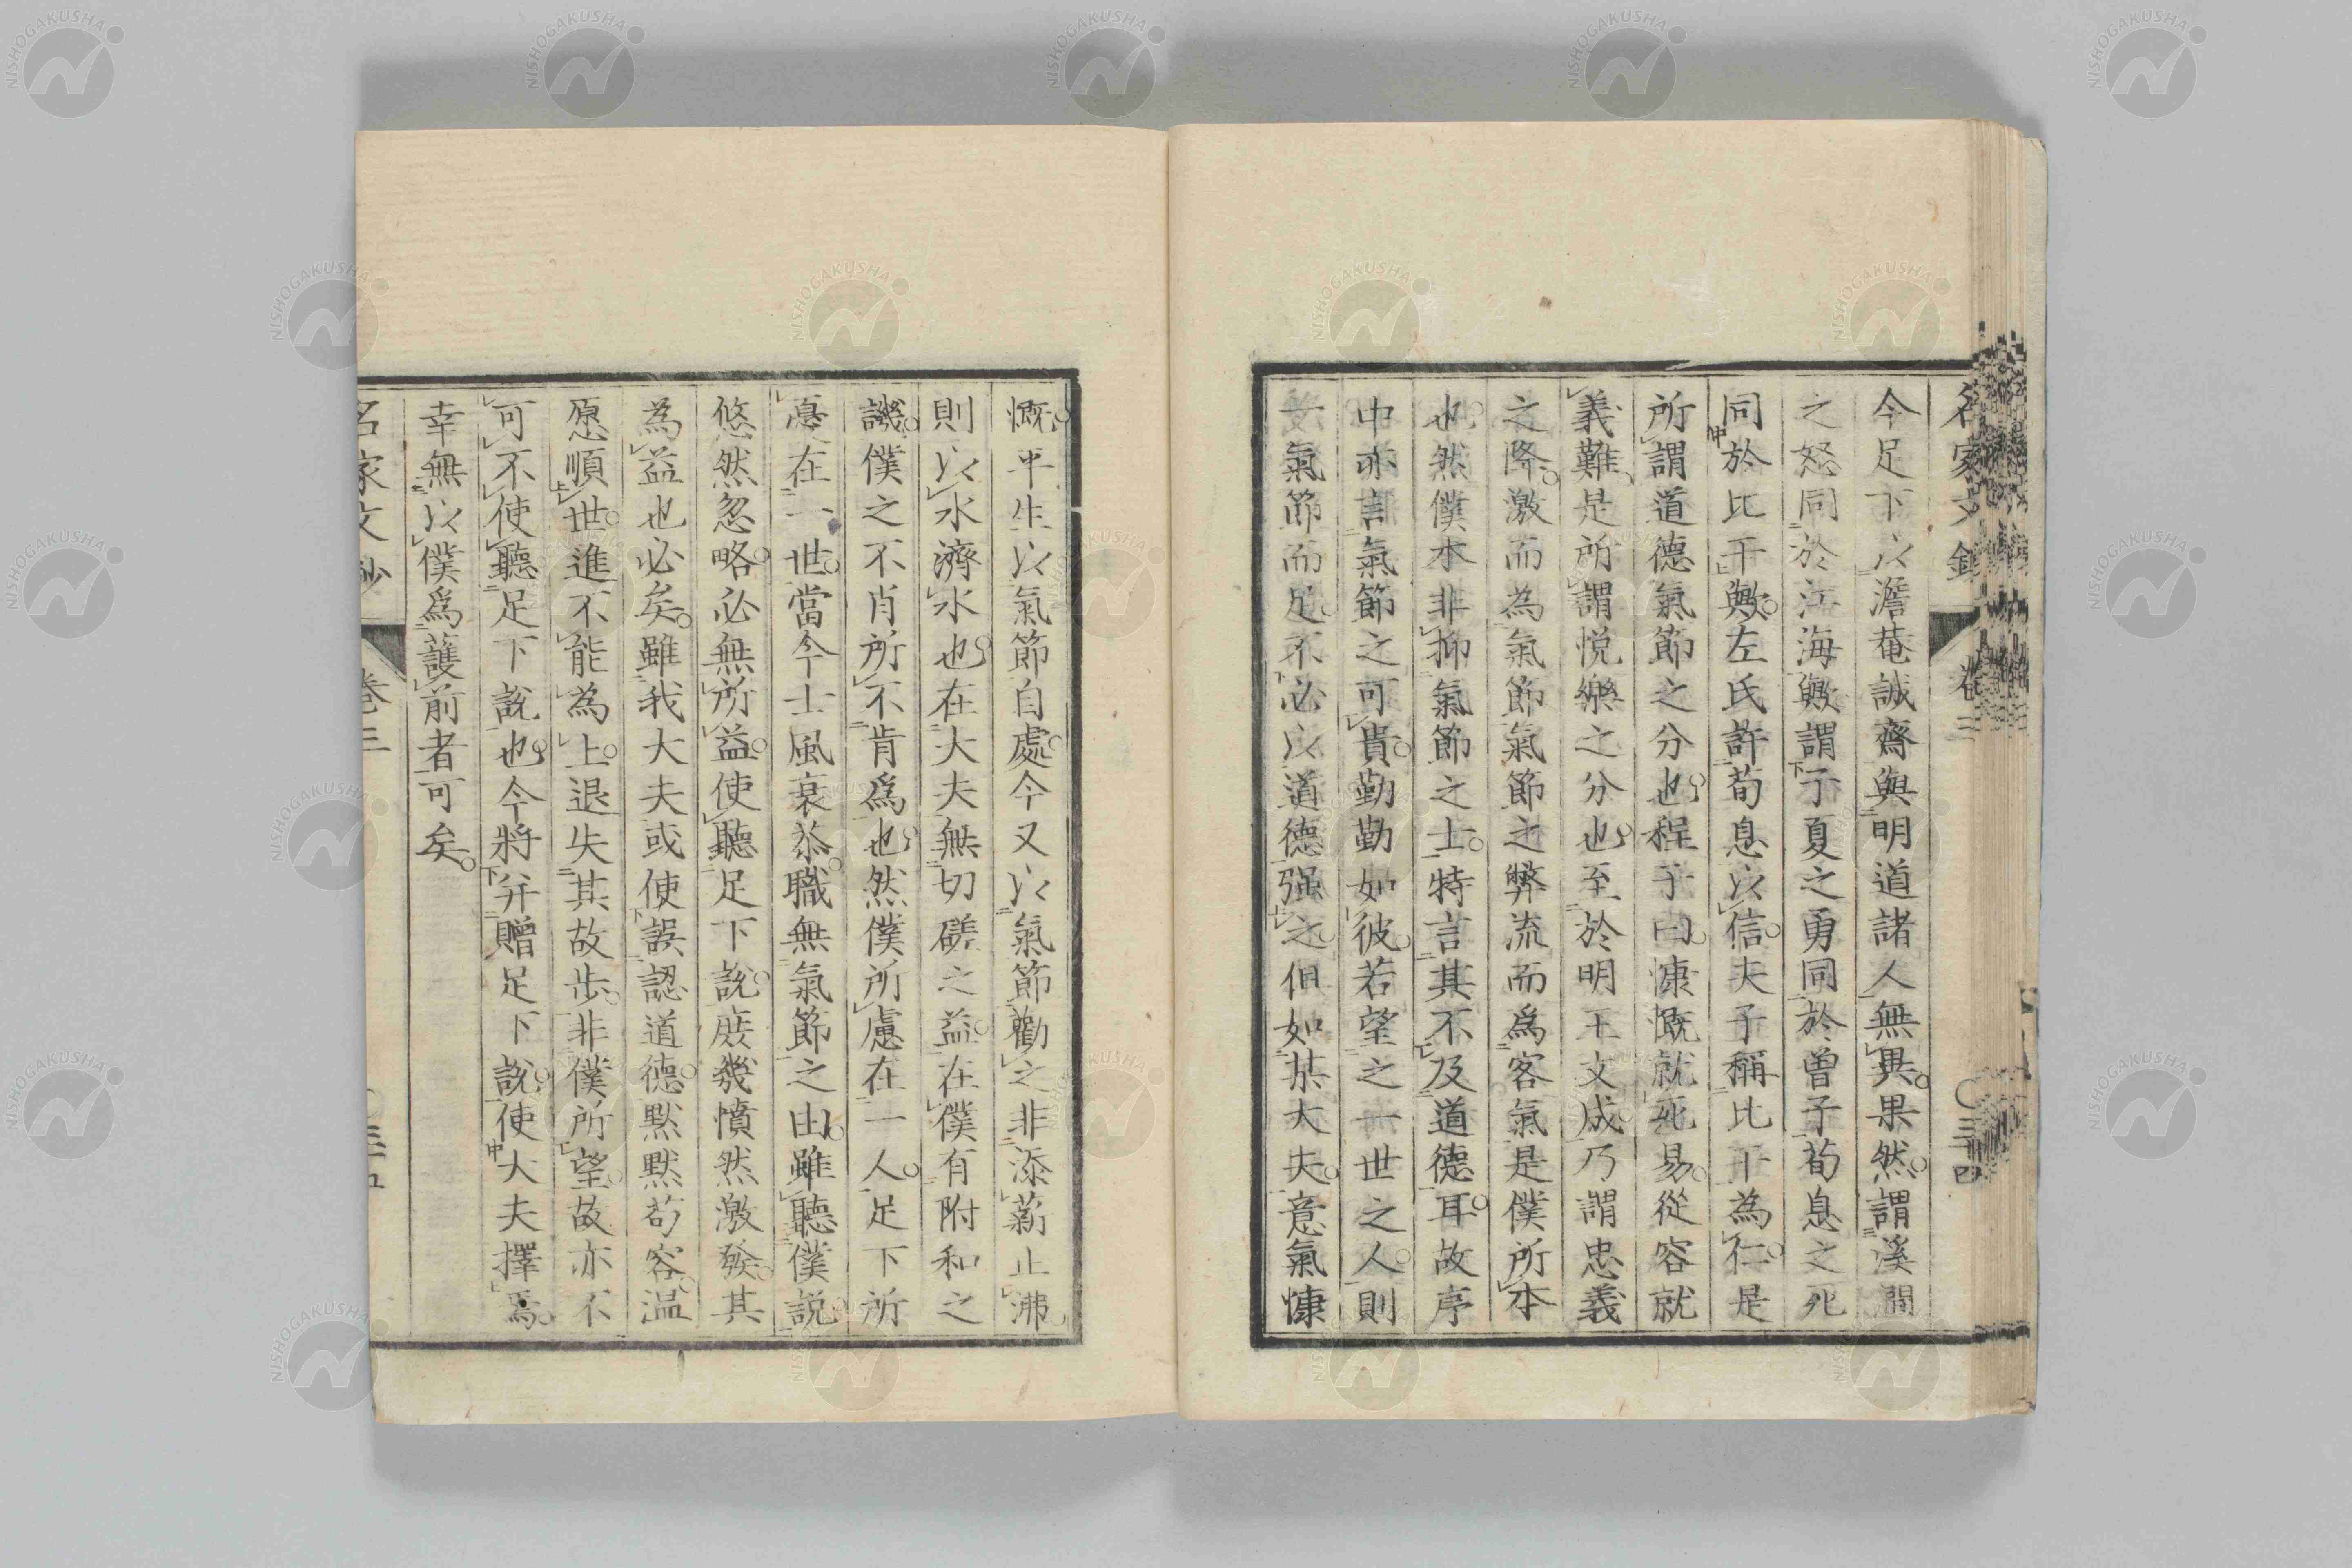 今足下以澹菴誠齋與明道諸人無異果然謂溪澗
之怒同於江海歟謂子夏之勇同於曾子荀息之死
同於比干歟左氏許荀息以信夫子稱比干為仁是
所謂道德氣節之分也程子曰慷慨就死易從容就
義難是所謂悦樂之分也至於明王文成乃謂忠義
之降激而為氣節氣節之弊流而爲客氣是僕所本
也然僕本非抑氣節之士特言其不及道德耳故序
中亦言氣節之可貴勤勤如彼若望之一世之人則
氣節而足不必以道德强之但如某大夫意氣慷
慨平生以氣節自處今又以氣節勸之非添薪止沸
則以水濟水也在大夫無切磋之益在僕有附和之
譏僕之不肖所不肯爲也然僕所慮在一人足下所
憂在一世當今士風衰苶職無氣節之由雖聽僕説
悠然忽略必無所益使聽足下說庶幾憤然激發其
為益也必矣雖我大夫或使誤認道德默默苟容温
愿順世進不能為上退失其故歩非僕所望故亦不
可不使聽足下說也今將并贈足下說使大夫擇焉
幸無以僕爲護前者可矣
名家文鈔
卷三
NISHOGAKUSHA